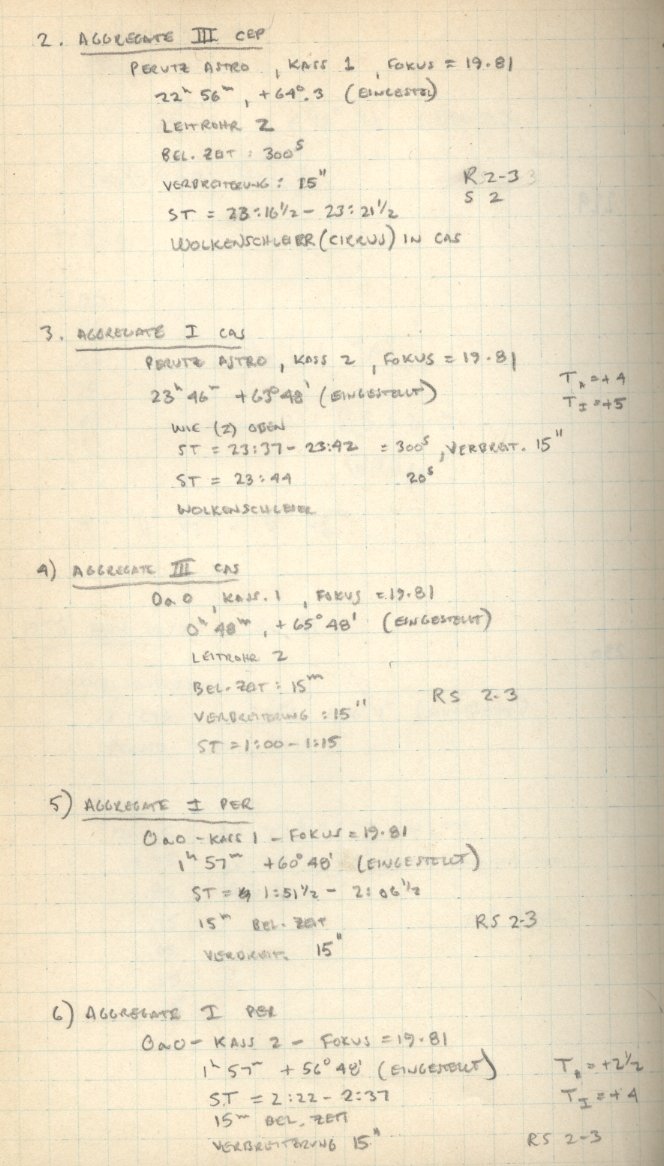 2. AGGREGATE III CEP
PERUTZ ASTRO, KASS 1, FOKUS = 19.81
22ʰ 56ᵐ, +64°.3 (EINGESTEL)
LEITROHR 2
BEL. ZEIT : 300ˢ
VERBREITERUNG : 15"
R 2-3 3
S 2
ST = 23:16 1/2 - 23:21 1/2
WOLKENSCHLEIER (CIRRUS) IN CAS
3. AGGREGATE I CAS
PERUTZ ASTRO, KASS 2, FOKUS = 19.81
23ʰ 46ᵐ +63°48' (EINGESTELLT)
T_A = +4
T_I = +5
WIE (2) OBEN
ST = 23:37 - 23:42 = 300ˢ, VERBREIT. 15"
ST = 23:44 20ˢ
WOLKENSCHLEIER
4) AGGREGATE III CAS
OaO, KASS. 1, FOKUS = 19.81
0ʰ 48ᵐ, +65°48' (EINGESTELLT)
LEITROHR 2
BEL. ZEIT : 15ᵐ
RS 2-3
VERBREITERUNG : 15"
ST = 1:00 - 1:15
5) AGGREGATE I PER
OaO - KASS 1 - FOKUS = 19.81
1ʰ 57ᵐ +60°48' (EINGESTELLT)
ST = 1:51 1/2 - 2:06 1/2
15ᵐ BEL. ZEIT
RS 2-3
VERBREIT. 15"
6) AGGREGATE I PER
OaO - KASS 2 - FOKUS = 19.81
1ʰ 57ᵐ +56°48' (EINGESTELLT)
T_A = +2 1/2
ST = 2:22 - 2:37
T_I = +4
15ᵐ BEL. ZEIT
VERBREITERUNG 15"
RS 2-3